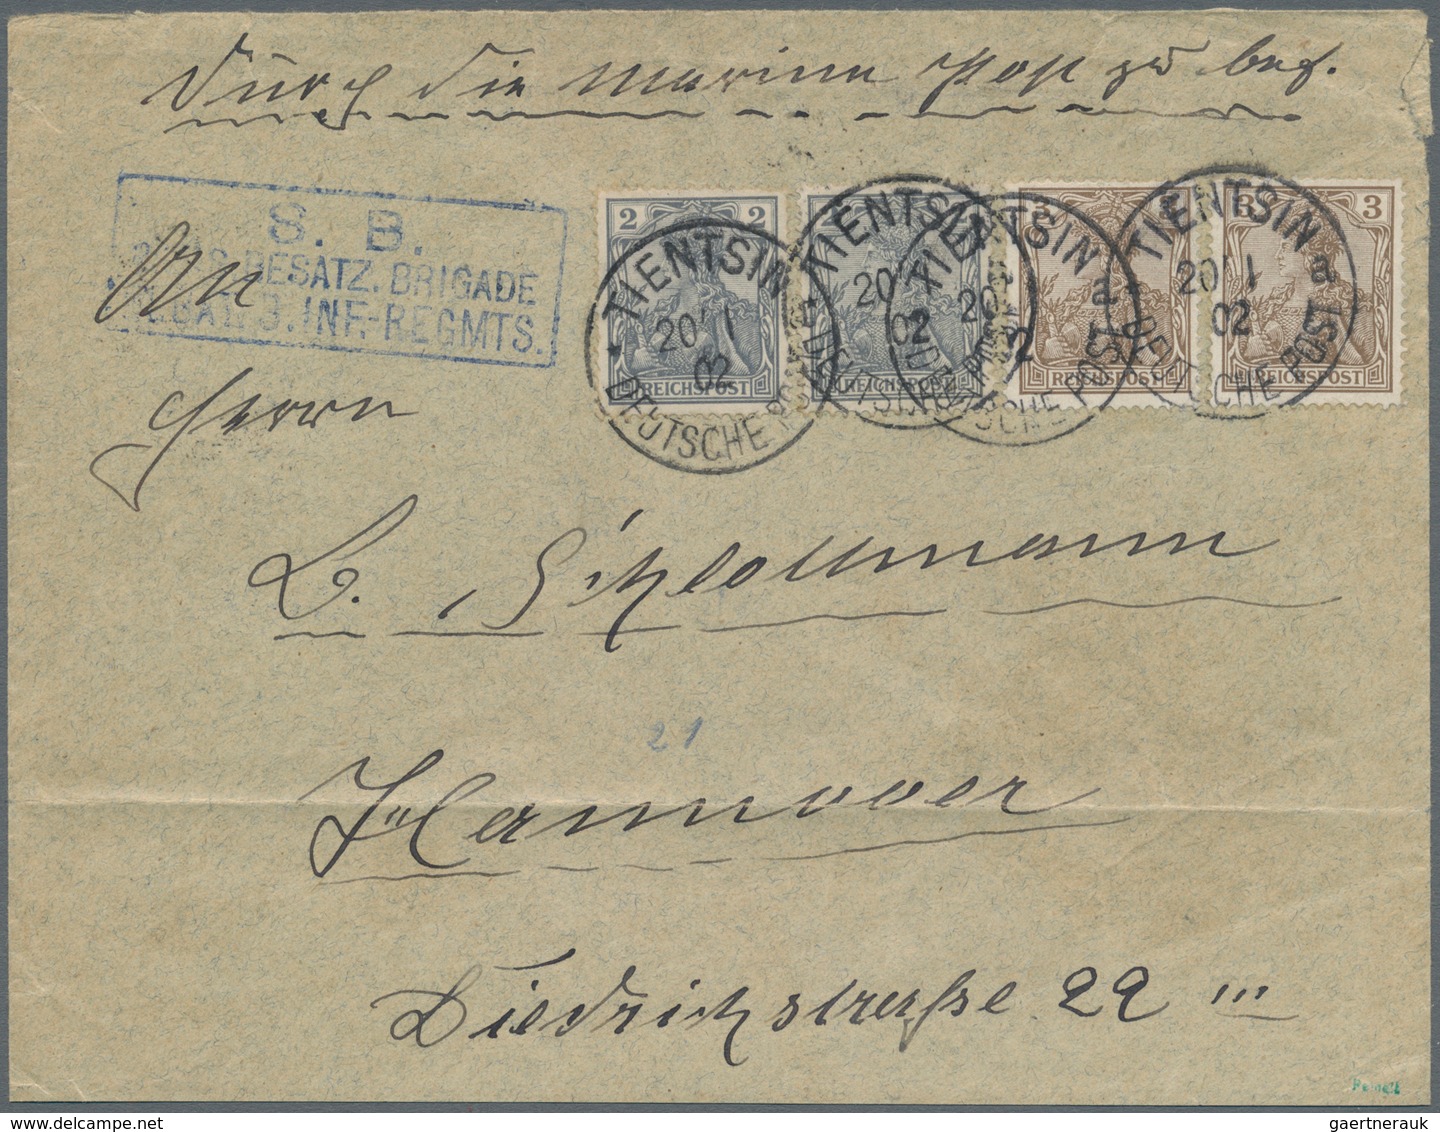 Durch die Marine Post zu bef.
S. B.
BESATZ. BRIGADE
3. INF.-REGMTS.
An
Herrn
2 2 REICHSPOST
REICHSPOST
3 REICHSPOST
3 3 REICHSPOST
TIENTSIN 20/1 02 DEUTSCHE POST
TIENTSIN 20/1 02 DEUTSCHE POST
TIENTSIN 20/1 02 a DEUTSCHE POST
TIENTSIN 20/1 02 a DEUTSCHE POST
L. Schlottmann
21
Hannover
Diedrichstraße 22 III
gaertnerauk@delcampe